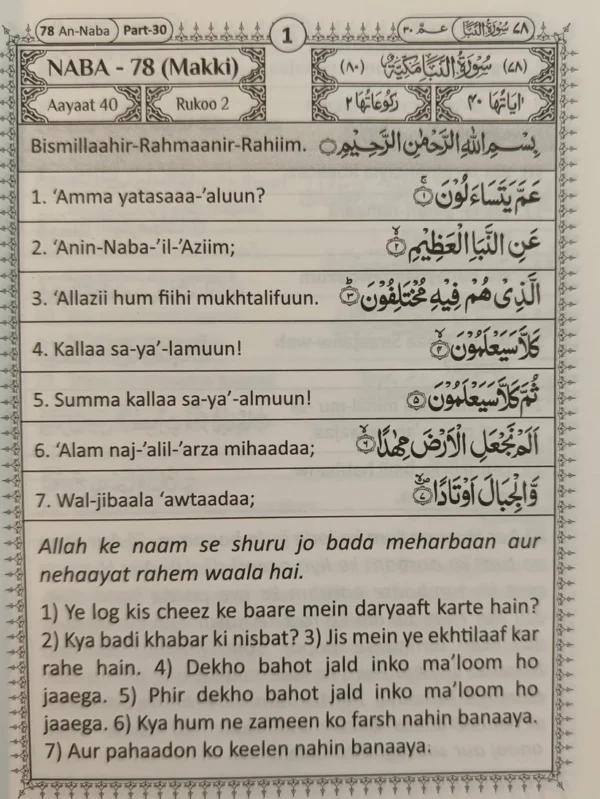 78 An-Naba Part-30 1 عمّ ٣٠ سُوْرَةُ النَّبَا ٧٨
NABA - 78 (Makki) (٧٨) سُوْرَةُ النَّبَا مَكِّيَّةٌ (٨٠)
Aayaat 40 Rukoo 2 اٰيَاتُهَا ٤٠ رُكُوْعَاتُهَا ٢
Bismillaahir-Rahmaanir-Rahiim. بِسْمِ اللّٰهِ الرَّحْمٰنِ الرَّحِيْمِ
1. ‘Amma yatasaaa-’aluun? عَمَّ يَتَسَآءَلُوْنَ ١
2. ‘Anin-Naba-’il-’Aziim; عَنِ النَّبَاِ الْعَظِيْمِ ٢
3. ‘Allazii hum fiihi mukhtalifuun. الَّذِيْ هُمْ فِيْهِ مُخْتَلِفُوْنَ ٣
4. Kallaa sa-ya’-lamuun! كَلَّا سَيَعْلَمُوْنَ ٤
5. Summa kallaa sa-ya’-almuun! ثُمَّ كَلَّا سَيَعْلَمُوْنَ ٥
6. ‘Alam naj-’alil-’arza mihaadaa; اَلَمْ نَجْعَلِ الْاَرْضَ مِهٰدًا ٦
7. Wal-jibaala ‘awtaadaa; وَّالْجِبَالَ اَوْتَادًا ٧
Allah ke naam se shuru jo bada meharbaan aur
nehaayat rahem waala hai.
1) Ye log kis cheez ke baare mein daryaaft karte hain?
2) Kya badi khabar ki nisbat? 3) Jis mein ye ekhtilaaf kar
rahe hain. 4) Dekho bahot jald inko ma’loom ho
jaaega. 5) Phir dekho bahot jald inko ma’loom ho
jaaega. 6) Kya hum ne zameen ko farsh nahin banaaya.
7) Aur pahaadon ko keelen nahin banaaya.